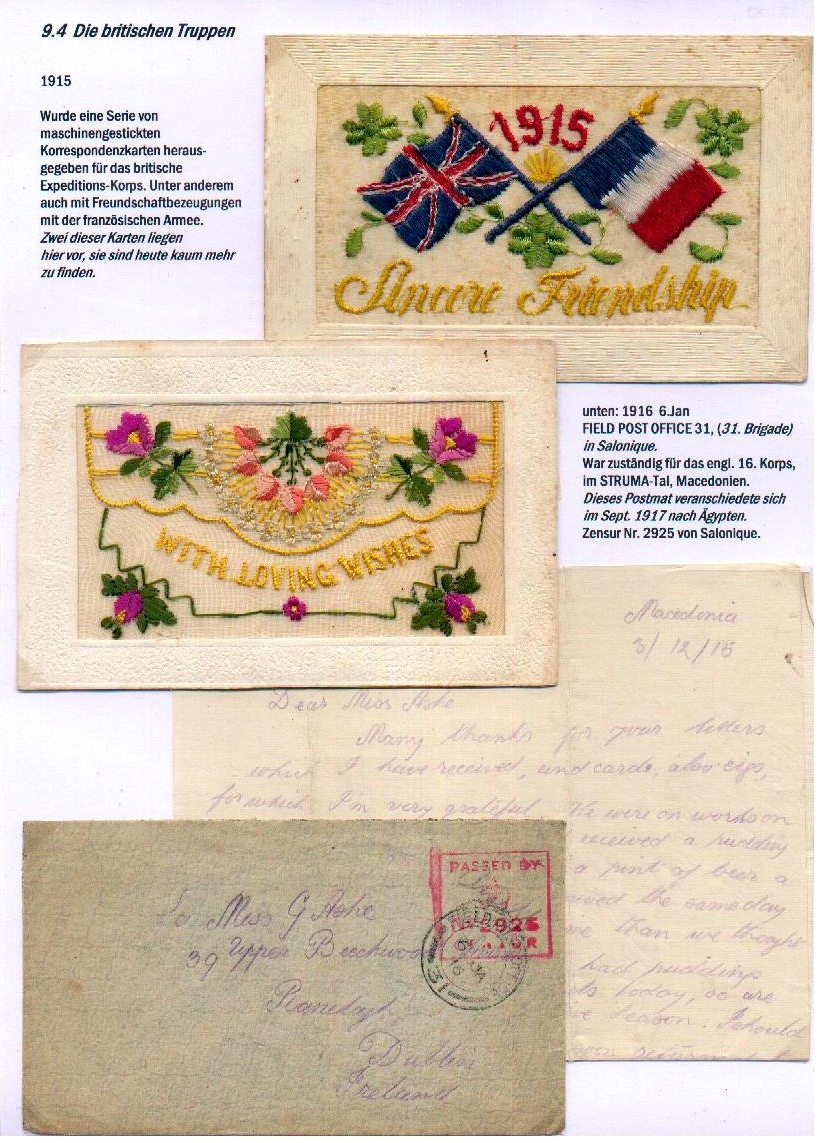 9.4 Die britischen Truppen
1915
Wurde eine Serie von
maschinengestickten
Korrespondenzkarten heraus-
gegeben für das britische
Expeditions-Korps. Unter anderem
auch mit Freundschaftbezeugungen
mit der französischen Armee.
Zwei dieser Karten liegen
hier vor, sie sind heute kaum mehr
zu finden.
1915
Sincere Friendship
WITH LOVING WISHES
unten: 1916 6.Jan
FIELD POST OFFICE 31, (31. Brigade)
in Salonique.
War zuständig für das engl. 16. Korps,
im STRUMA-Tal, Macedonien.
Dieses Postmat veranschiedete sich
im Sept. 1917 nach Ägypten.
Zensur Nr. 2925 von Salonique.
Macedonia
3/12/15
Dear Miss Ashe
Many thanks for your letters
which I have received, and cards, also cigs,
for which I'm very grateful. We were on
received a pudding
a pint of beer a
the same day
than we thought
had puddings
today, so are
season. I should
PASSED BY
2925
Miss G Ashe
39 Upper Beechwood
Ranelagh
Dublin
Ireland
31